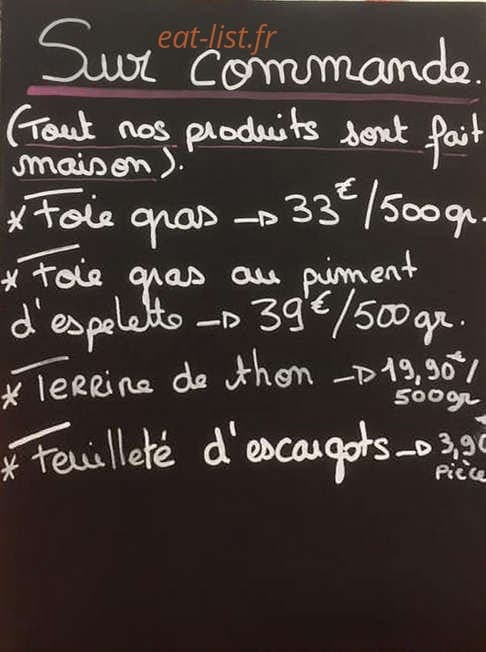 eat-list.fr
Sur commande.
(Tout nos produits sont fait
maison).
* Foie gras → 33€/500gr.
* Foie gras au piment
d'espelette → 39€/500gr.
* Terrine de thon → 19,90€/
500gr
* Feuilleté d'escargots → 3,90
pièce